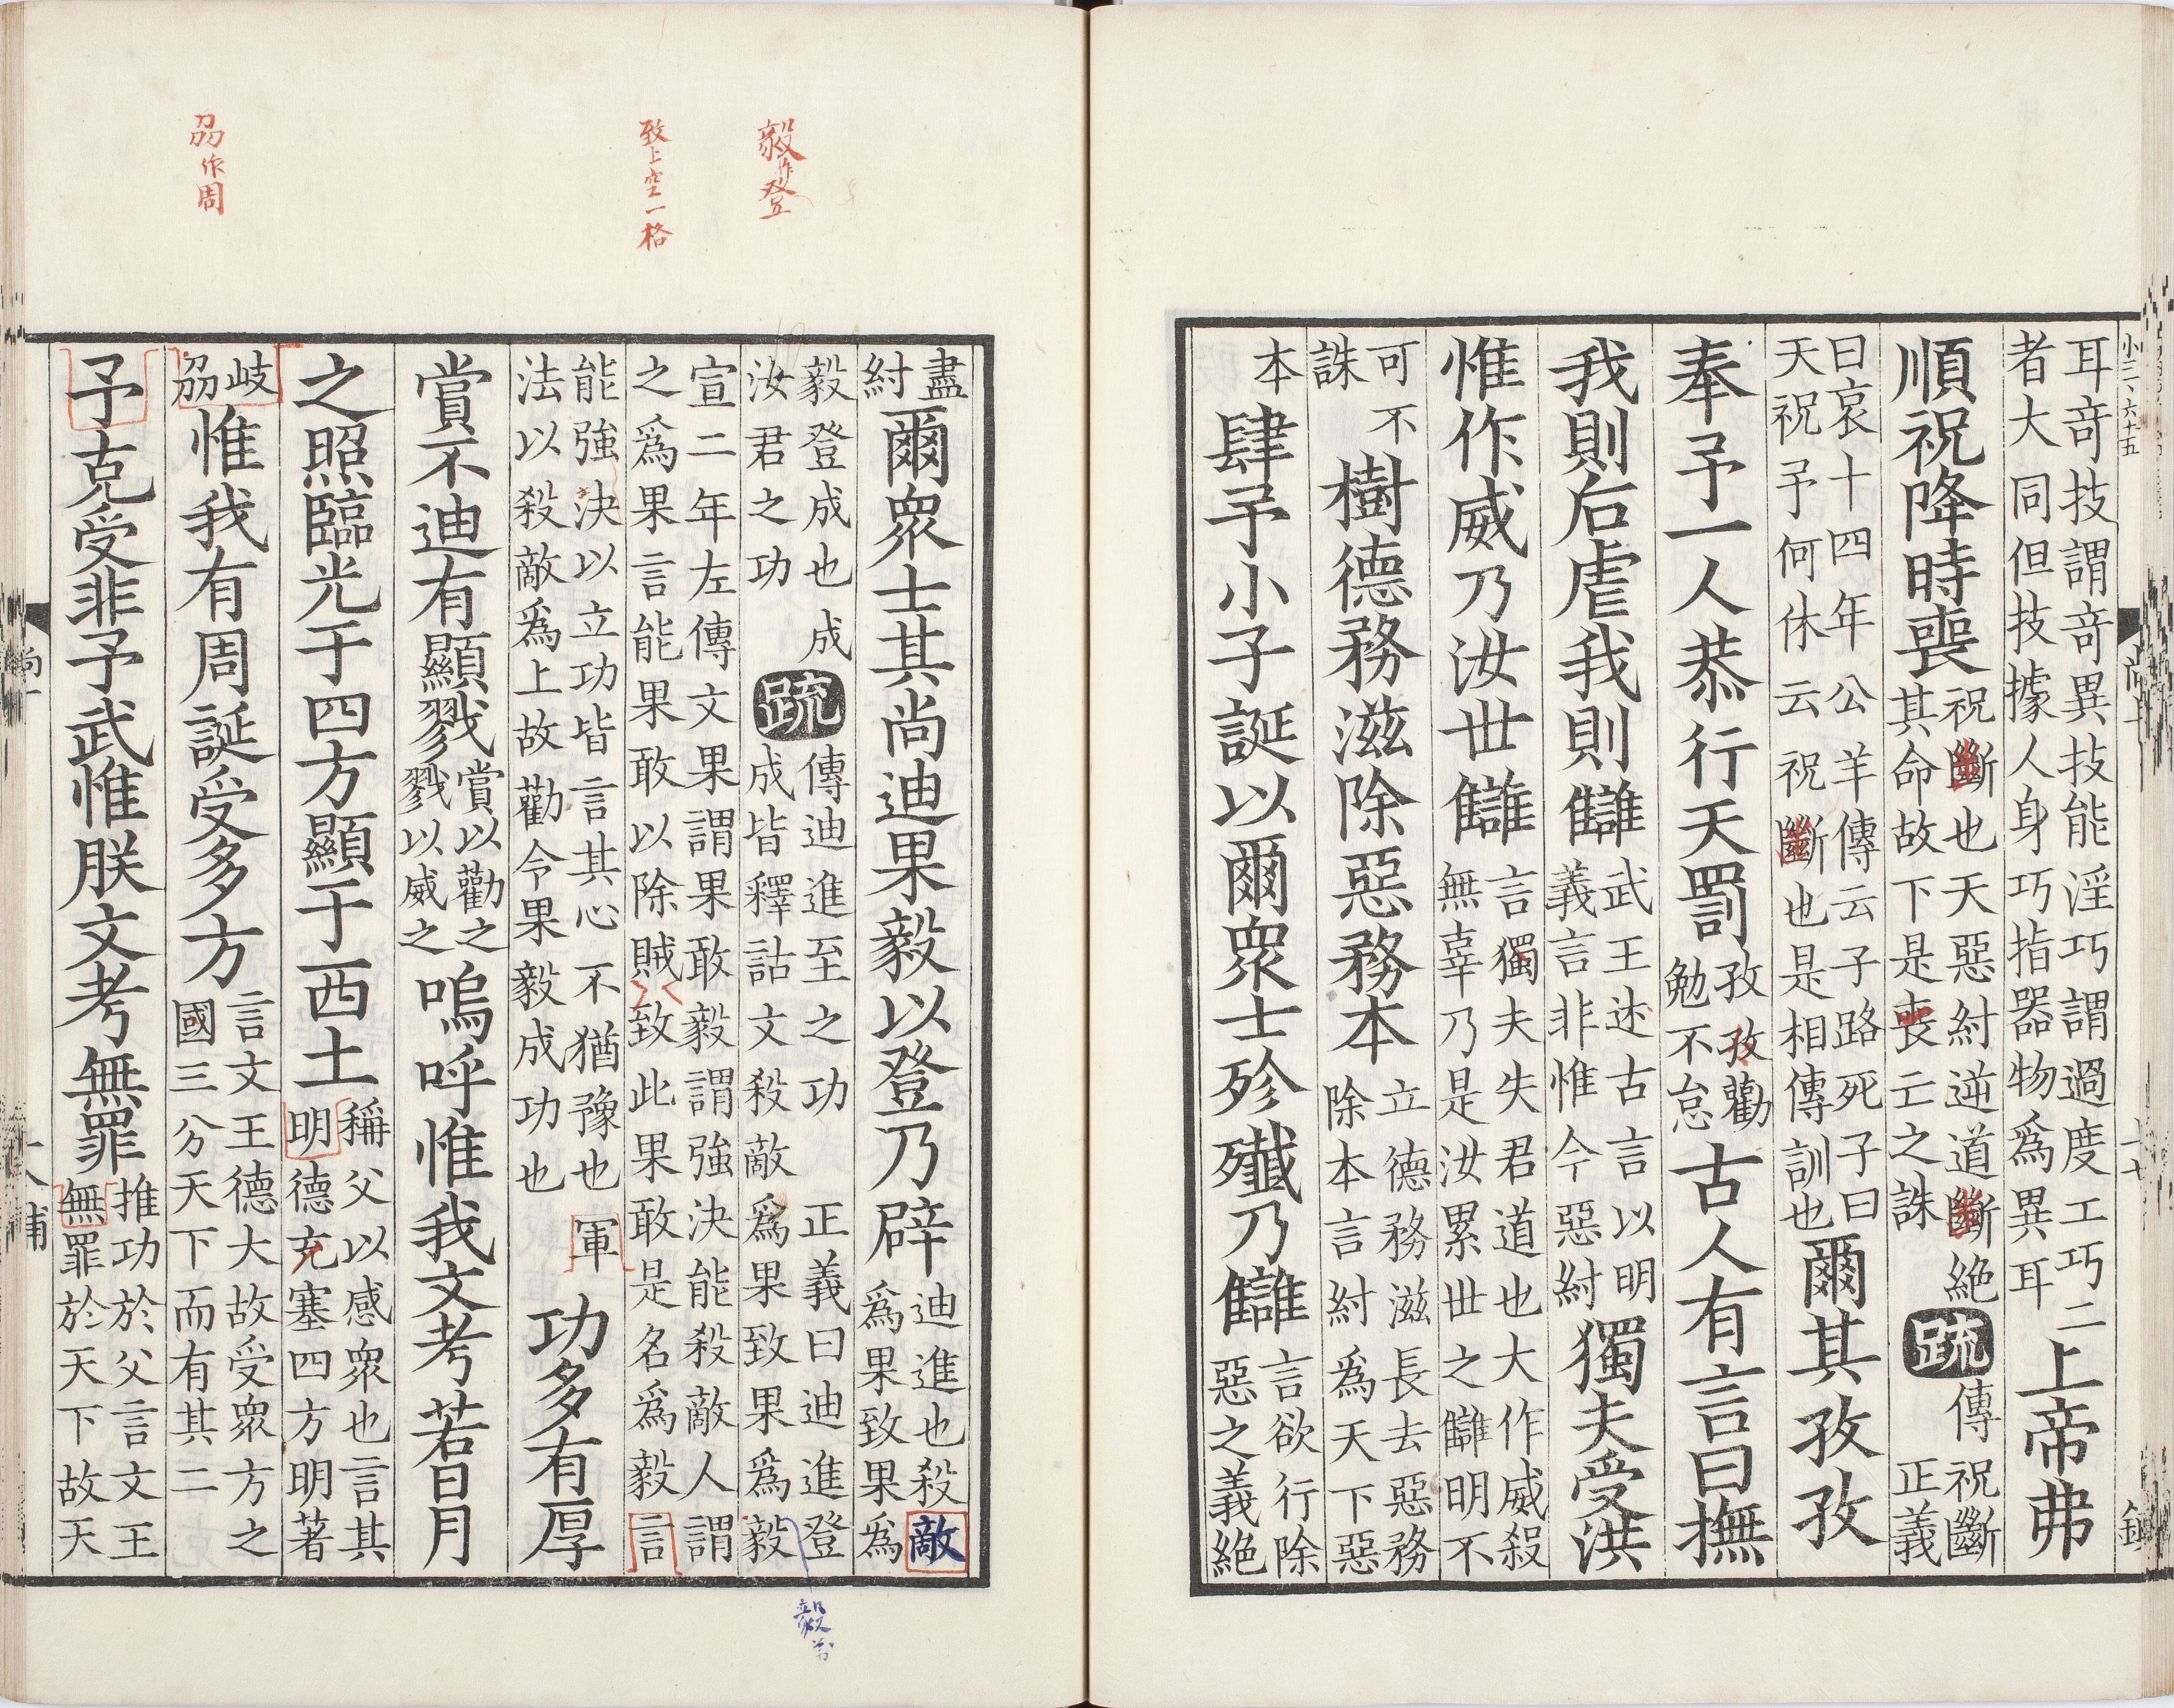 小三、六十五
耳竒技謂竒異技能淫巧謂過度工巧二
者大同但技據人身巧指器物爲異耳
上帝弗
順祝降時喪
祝斷也天惡紂逆道斷絶
其命故下是喪亡之誅
疏
傳祝斷
正義
曰哀十四年公羊傳云子路死子曰
天祝予何休云祝斷也是相傳訓也
爾其孜孜
奉予一人恭行天罰
孜孜勸
勉不怠
古人有言曰撫
我則后虐我則讎
武王述古言以明
義言非惟今惡紂
獨夫受洪
惟作威乃汝世讎
言獨夫失君道也大作威殺
無辜乃是汝累世之讎明不
可不
誅
樹德務滋除惡務本
立德務滋長去惡務
除本言紂為天下惡
本
肆予小子誕以爾衆士殄殲乃讎
言欲行除
惡之義絶
盡
紂
爾衆士其尚迪果毅以登乃辟
迪進也殺敵
爲果致果爲
毅登成也成
汝君之功
疏
傳迪進至之功 正義曰迪進登
成皆釋詁文殺敵爲果致果爲毅
宣二年左傳文果謂果敢毅謂強決能殺敵人謂
之爲果言能果敢以除賊致此果敢是名爲毅言
能強決以立功皆言其心不猶豫也軍
法以殺敵爲上故勸令果毅成功也
功多有厚
賞不迪有顯戮
賞以勸之
戮以威之
嗚呼惟我文考若日月
之照臨光于四方顯于西土
稱父以感衆也言其
明德充塞四方明著
岐
刕
惟我有周誕受多方
言文王德大故受衆方之
國三分天下而有其二
予克受非予武惟朕文考無罪
推功於父言文王
無罪於天下故天
毅作登
致上空一格
刕作周